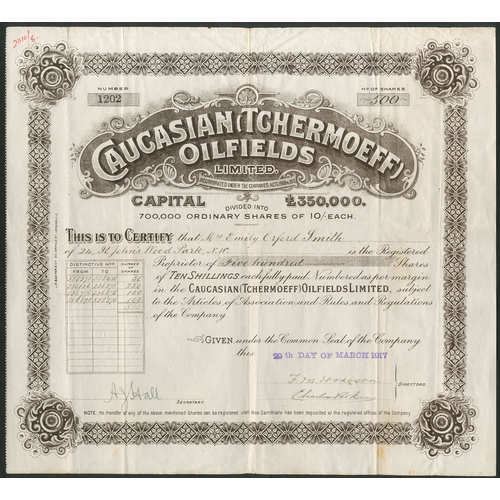 NUMBER
1202
Nº OF SHARES
500
CAUCASIAN (TCHERMOEFF)
OILFIELDS
LIMITED.
INCORPORATED UNDER THE COMPANIES ACTS
CAPITAL £350,000.
DIVIDED INTO
700,000 ORDINARY SHARES OF 10/- EACH.
THIS IS TO CERTIFY that Mrs Emily Orford Smith
of 24, St John's Wood Park, N.W. is the Registered
Proprietor of Five hundred Shares
of TEN SHILLINGS each fully paid Numbered as per margin
in the CAUCASIAN (TCHERMOEFF) OILFIELDS, LIMITED, subject
to the Articles of Association and Rules and Regulations
of the Company.
DISTINCTIVE Nºs
FROM TO
NUMBER OF SHARES
GIVEN under the Common Seal of the Company
this 29th DAY OF MARCH 1917
SECRETARY
DIRECTORS
NOTE: No transfer of any of the above mentioned Shares can be registered until this Certificate has been deposited at the registered offices of the Company